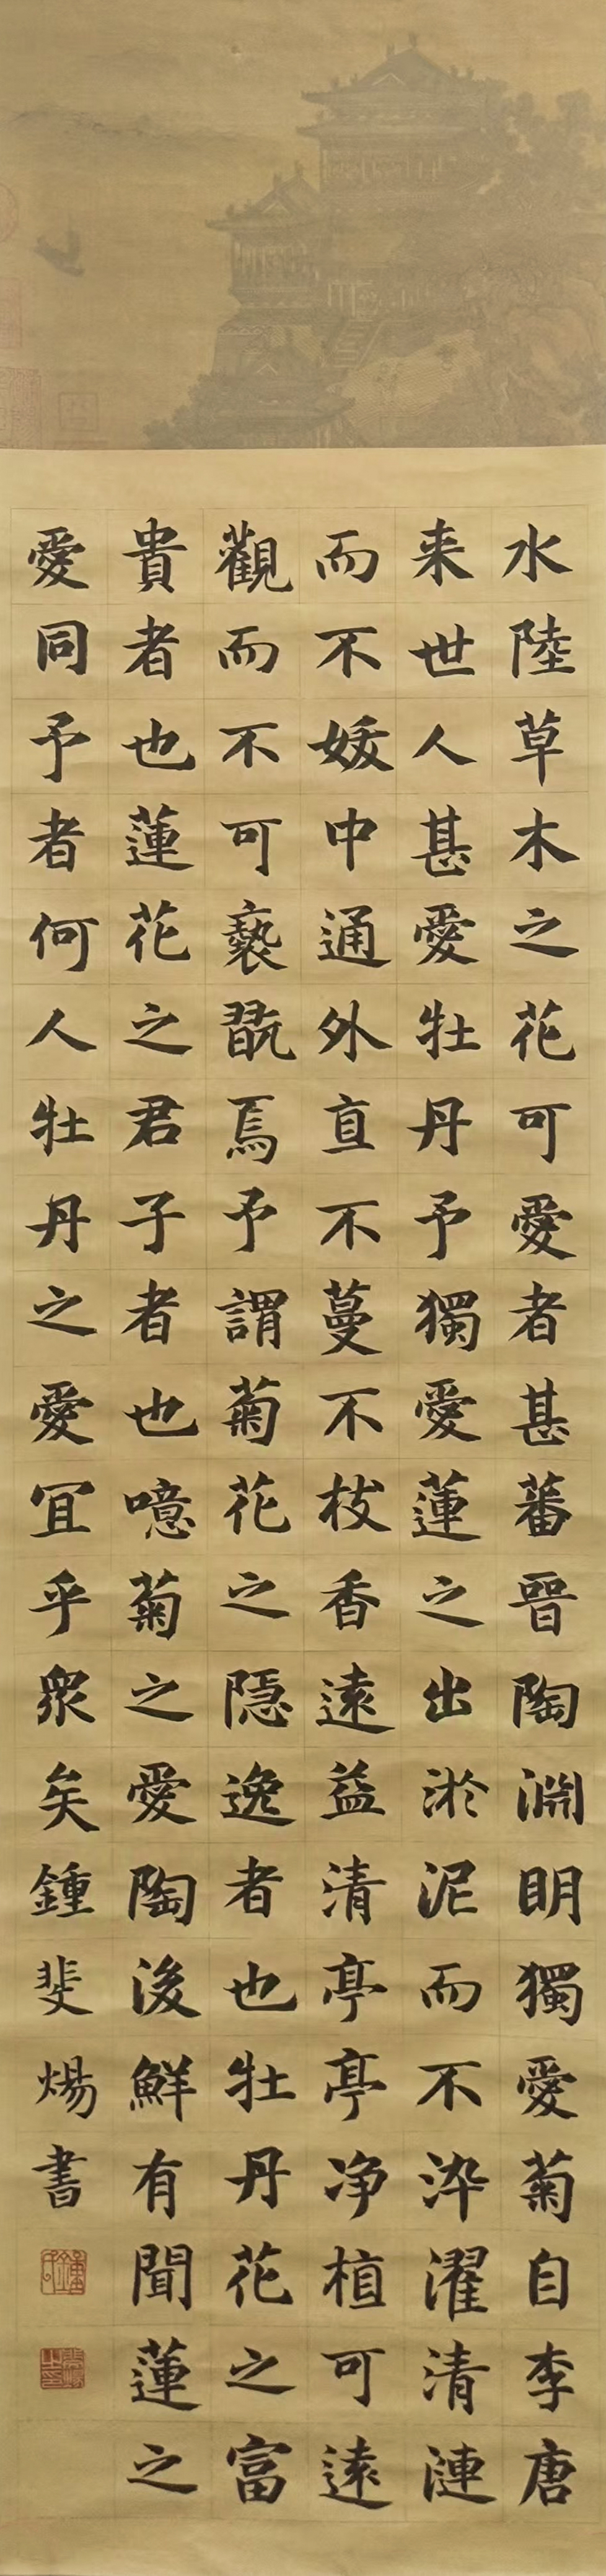 水陸草木之花可愛者甚蕃晉陶淵明獨愛菊自李唐
来世人甚愛牡丹予獨愛蓮之出淤泥而不染濯清漣
而不妖中通外直不蔓不枝香遠益清亭亭净植可遠
觀而不可褻翫焉予謂菊花之隐逸者也牡丹花之富
貴者也蓮花之君子者也噫菊之愛陶後鮮有聞蓮之
愛同予者何人牡丹之愛宜乎衆矣鍾斐煬書